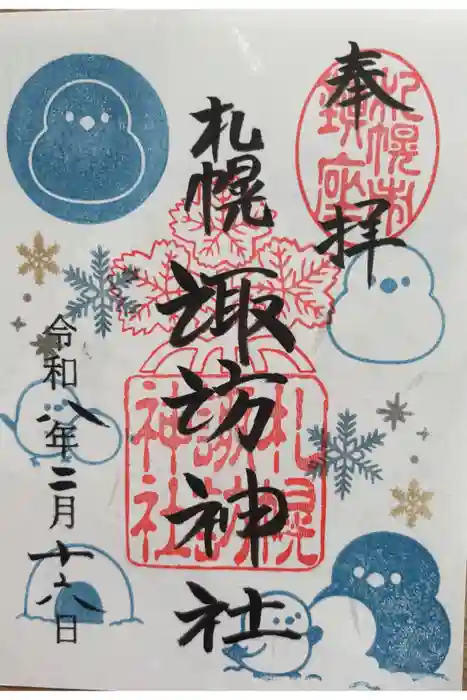 奉拝
札幌市
鎮座
札幌
諏訪神社
札幌
諏訪
神社
令和八年二月十六日